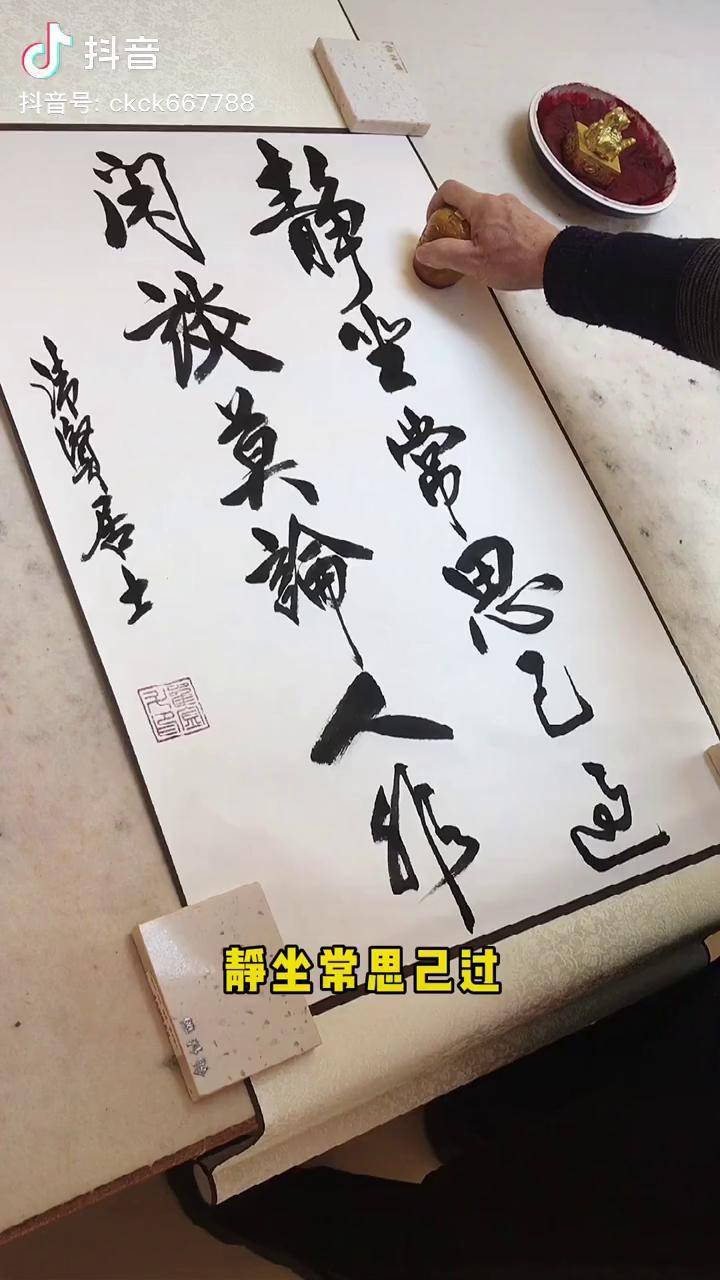 抖音
抖音号: ckck667788
静坐常思己过
闲谈莫論人非
清賢居士
靜坐常思己过